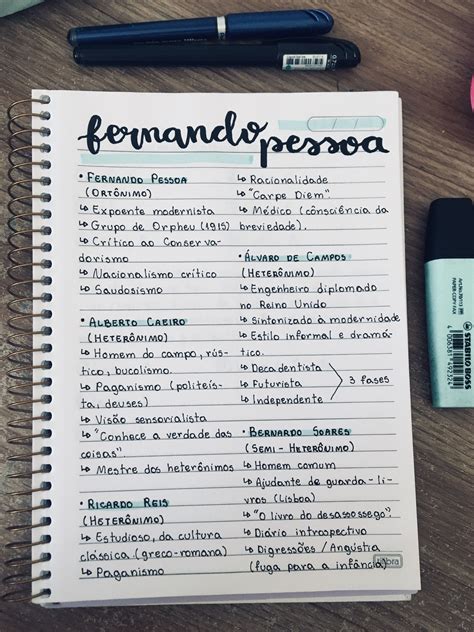 fernando
pessoa
• FERNANDO PESSOA
(ORTÔNIMO)
↳ Expoente modernista
↳ Grupo de Orpheu (1915)
↳ Crítico ao Conserva-
dorismo
↳ Nacionalismo crítico
↳ Saudosismo
• ALBERTO CAEIRO
(HETERÔNIMO)
↳ Homem do campo, rús-
tico, bucolismo.
↳ Paganismo (politeís-
ta, deuses)
↳ Visão sensorialista
↳ "Conhece a verdade das
coisas"
↳ Mestre dos heterônimos
• RICARDO REIS
(HETERÔNIMO)
↳ Estudioso, da cultura
clássica (greco-romana)
↳ Paganismo
↳ Racionalidade
↳ "Carpe Diem".
↳ Médico (consciência da
breviedade).
• ÁLVARO DE CAMPOS
(HETERÔNIMO)
↳ Engenheiro diplomado
no Reino Unido
↳ Sintonizado à modernidade
↳ Estilo informal e dramá-
tico.
↳ Decadentista
↳ Futurista
↳ Independente
3 fases
• BERNARDO SOARES
(SEMI-HETERÔNIMO)
↳ Homem comum
↳ Ajudante de guarda-li-
vros (Lisboa)
↳ "O livro do desassossego".
↳ Diário introspectivo
↳ Digressões / Angústia
(fuga para a infância)
STABILO BOSS